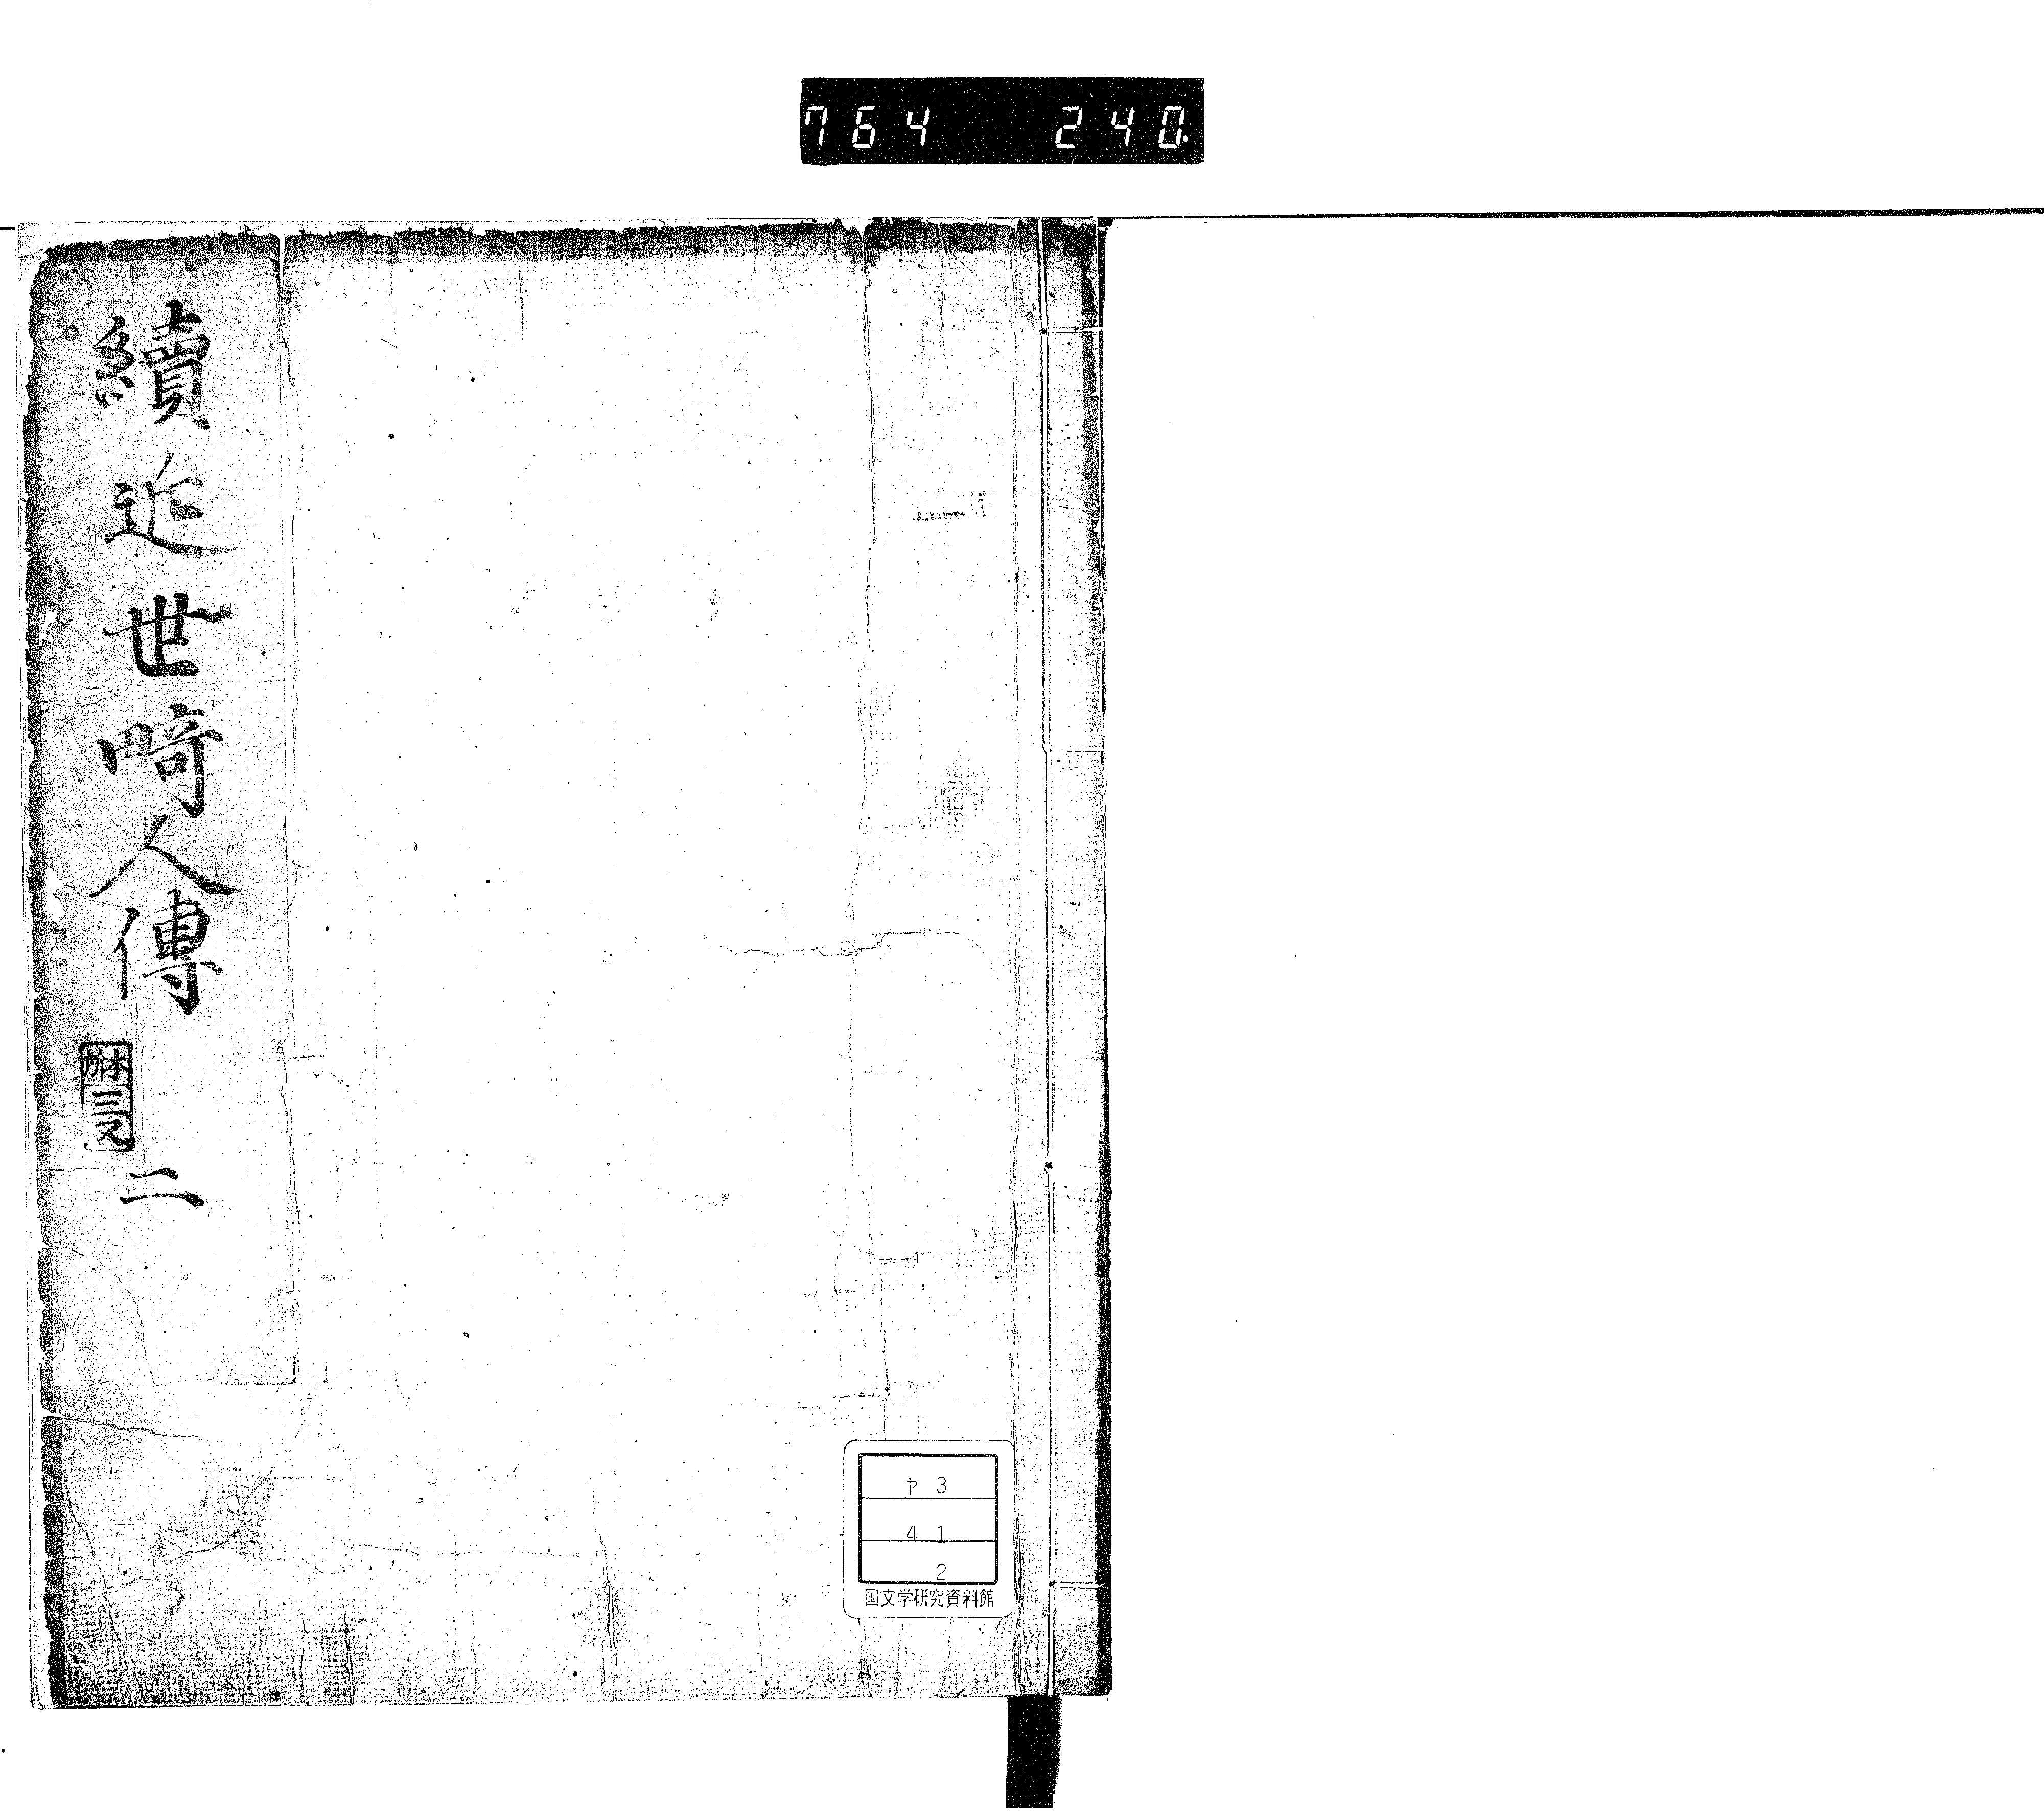 764 240.
續近世畸人傳
二
ヤ3
41
2
国文学研究資料館